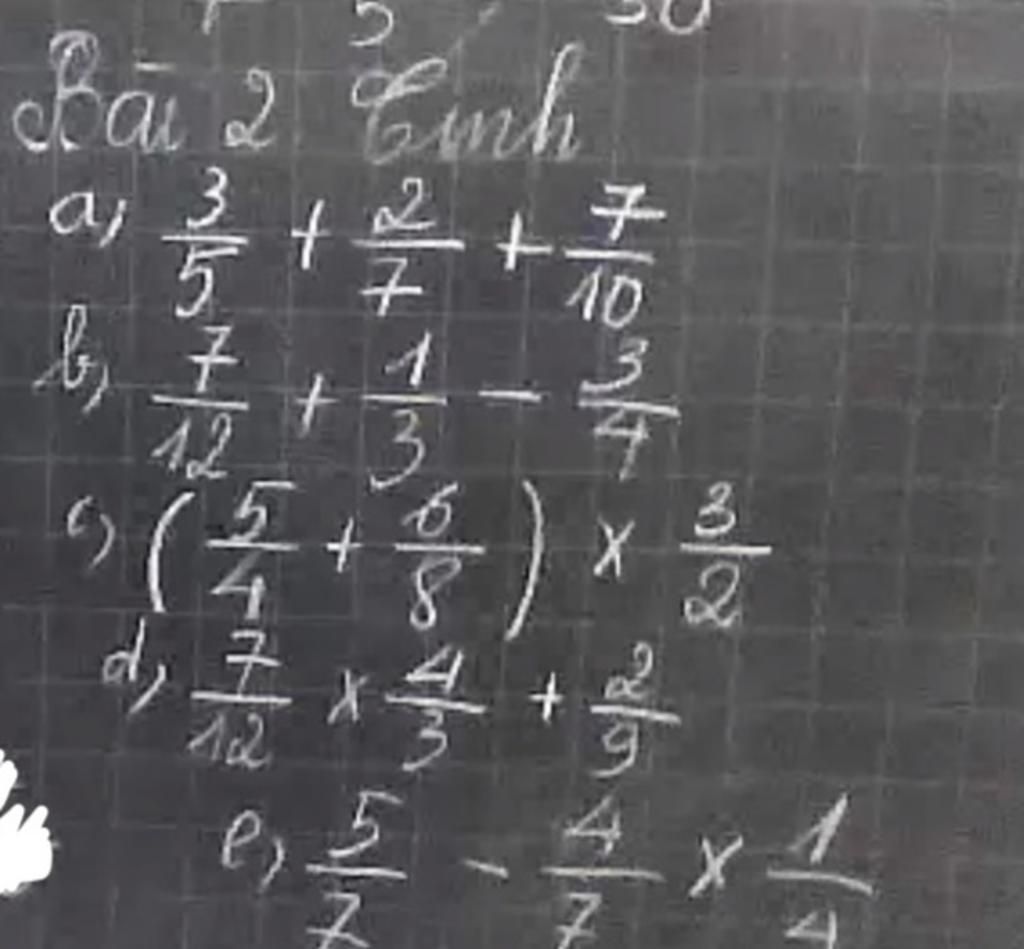 5 30
Bài 2 Tính
a, 3/5 + 2/7 + 7/10
b, 7/12 + 1/3 - 3/4
c, (5/4 + 6/8) x 3/2
d, 7/12 x 4/3 + 2/9
e, 5/7 - 4/7 x 1/4